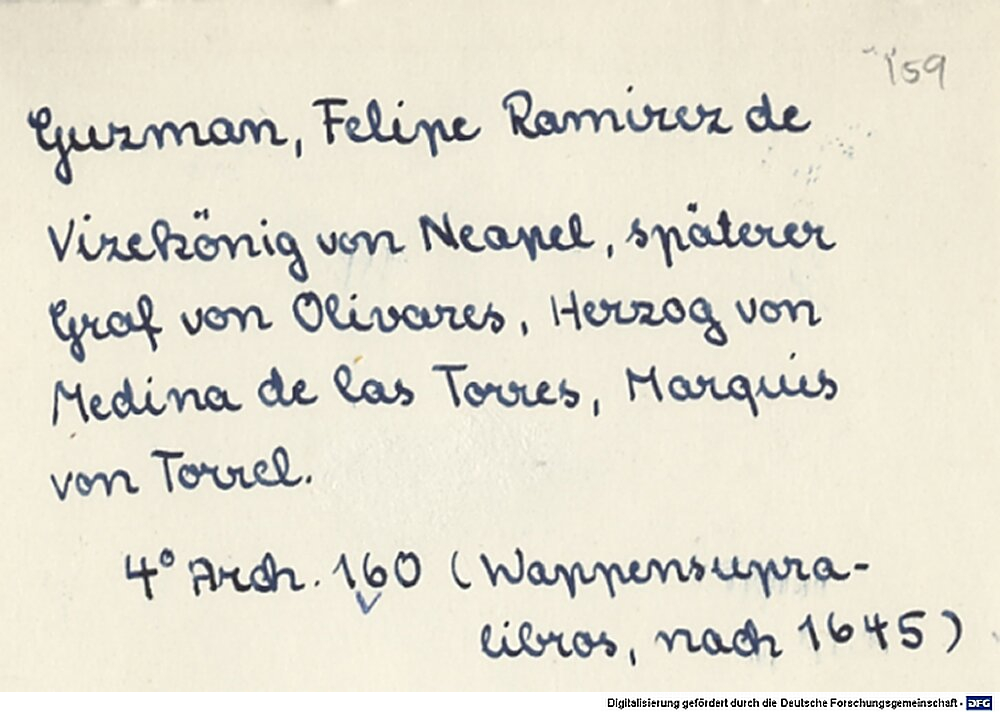 159
Guzman, Felipe Ramirez de
Vizekönig von Neapel, späterer
Graf von Olivares, Herzog von
Medina de las Torres, Marquis
von Torrel.
4° Arch. 160 (Wappensupra-
libros, nach 1645)
Digitalisierung gefördert durch die Deutsche Forschungsgemeinschaft - DFG